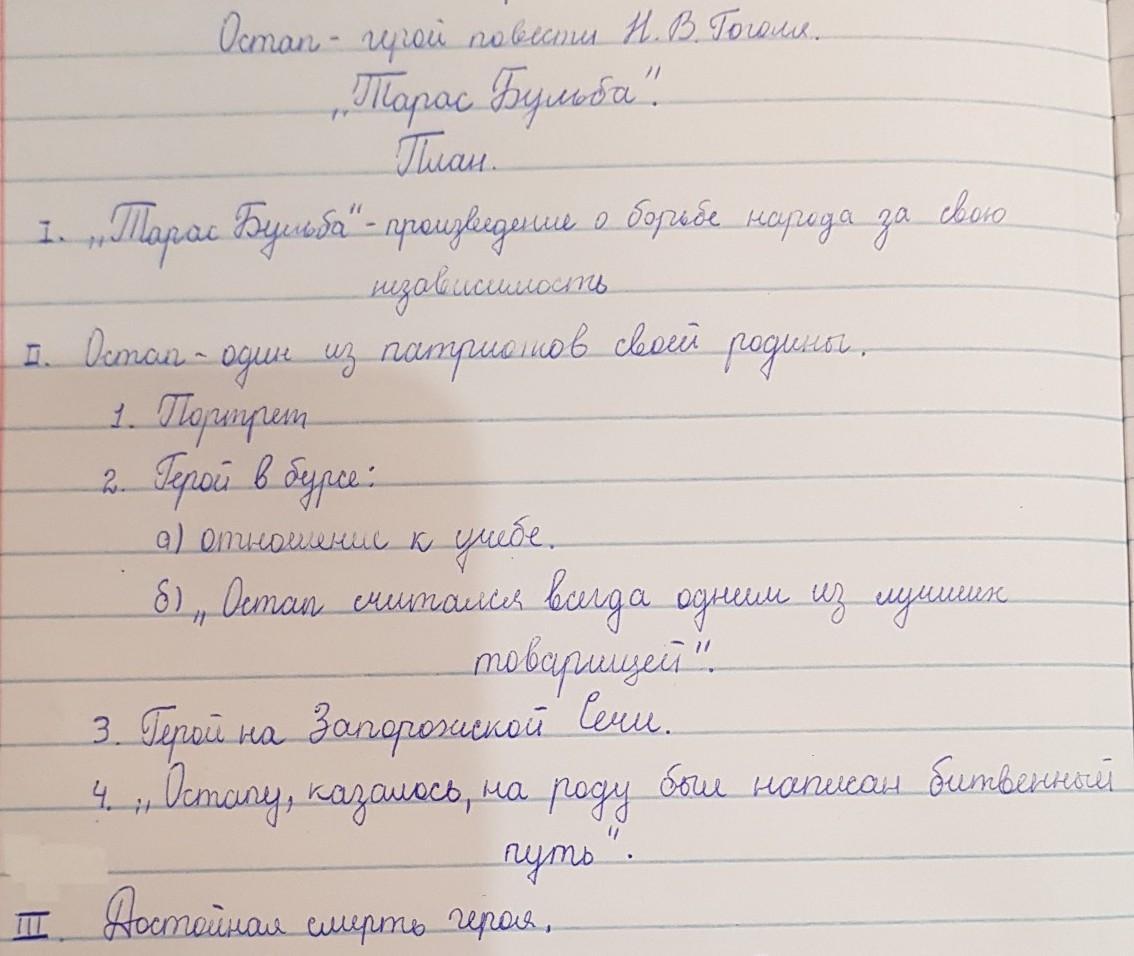 Остап - герой повести Н. В. Гоголя.
„Тарас Бульба".
План.
I. „Тарас Бульба" - произведение о борьбе народа за свою
независимость
II. Остап - один из патриотов своей родины.
1. Портрет
2. Герой в бурсе:
а) отношение к учебе.
б) „Остап считался всегда одним из лучших
товарищей".
3. Герой на Запорожской Сечи.
4. „Остапу, казалось, на роду был написан битвенный
путь".
III. Достойная смерть героя.